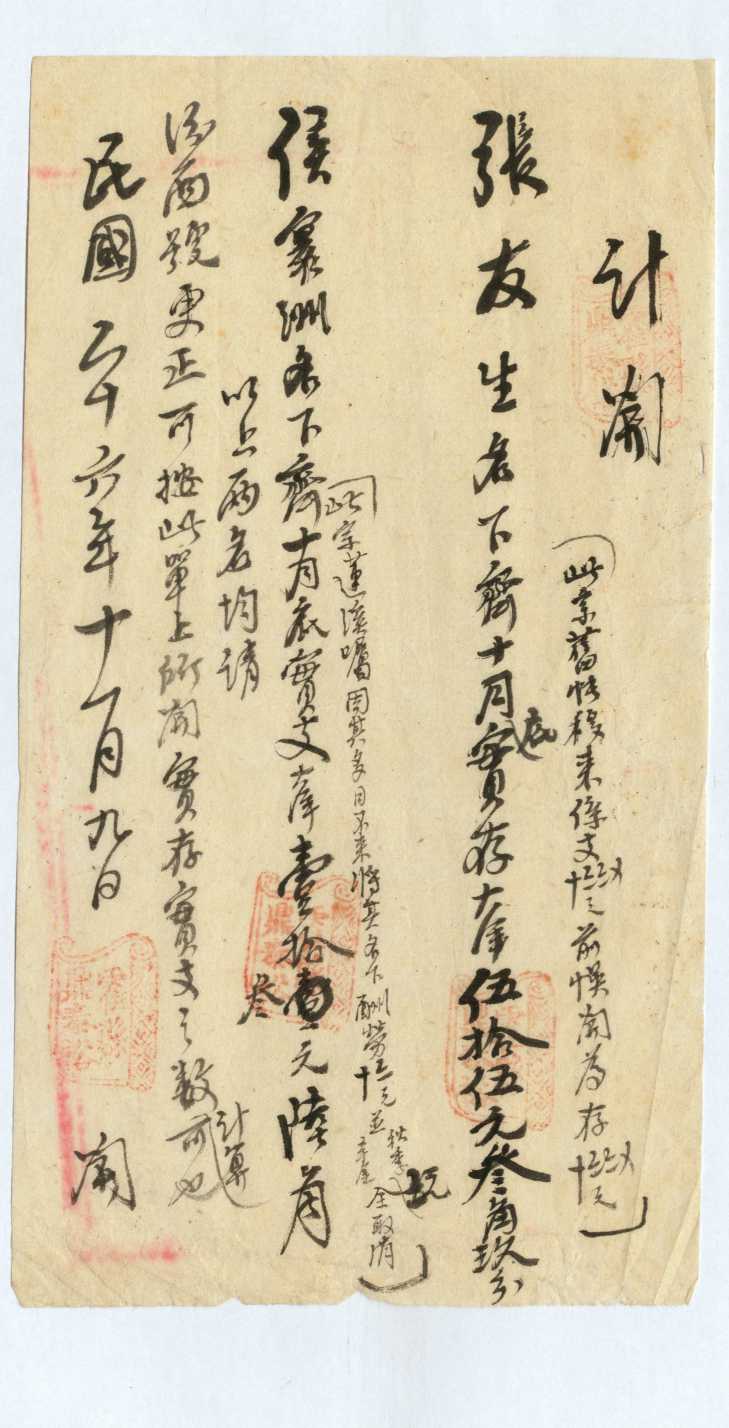 計開
（此宗舊帳移來係支十元前悮開為存十元）
張友生名下齊十月底實存大洋伍拾伍元叁角玖分
（此宗蓮溪囑因其多日不來將其名下酬勞十元並秋季全取消）
侯襄洲名下齊十月底實支大洋壹拾叁元陸角
以上兩名均請
商號更正可按此單上所開實存實支之數計算可也
民國二十六年十一月九日 開